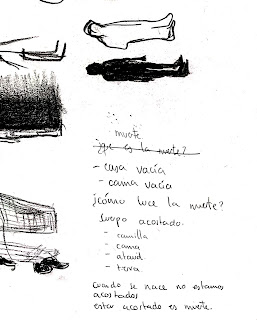 muerte
¿que es la muerte?
- casa vacía
- cama vacía
¿cómo luce la muerte?
cuerpo acostado.
- camilla
- cama
- ataud.
- tierra
Cuando se nace no estamos
acostados
estar acostado es muerte.